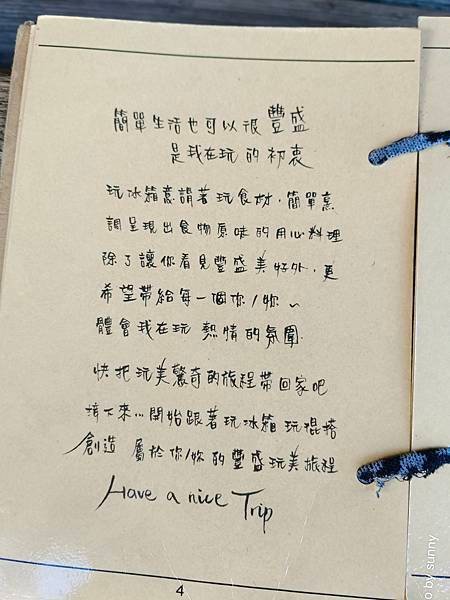 簡單生活也可以很豐盛
是我在玩的初衷
玩冰箱意謂著玩食材，簡單烹
調呈現出食物原味的用心料理
除了讓你看見豐盛美好外，更
希望帶給每一個你/妳~
體會我在玩 熱情的氛圍.
快把玩美驚奇的旅程帶回家吧
接下來...開始跟著玩冰箱 玩混搭
創造 屬於你/妳的豐盛玩美旅程
Have a nice Trip
4
o by sunny